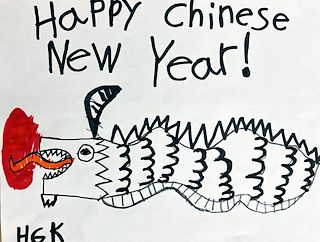 HaPPY Chinese
New Year!
HGK